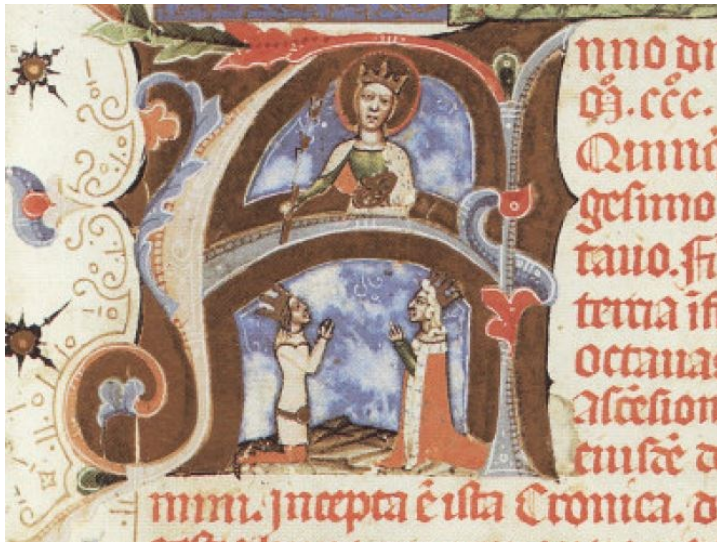 nno do
M̊. ccc̄.
Quinq̄
gesimo
tauo. Fe
tertia īf
octauas
asc̄esion
eiusdē d
mini. Incepta ē ista Cronica. d